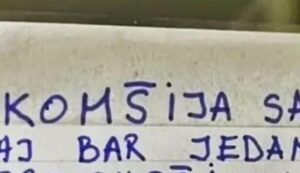 KOMŠIJA SA
AJ BAR JEDAN